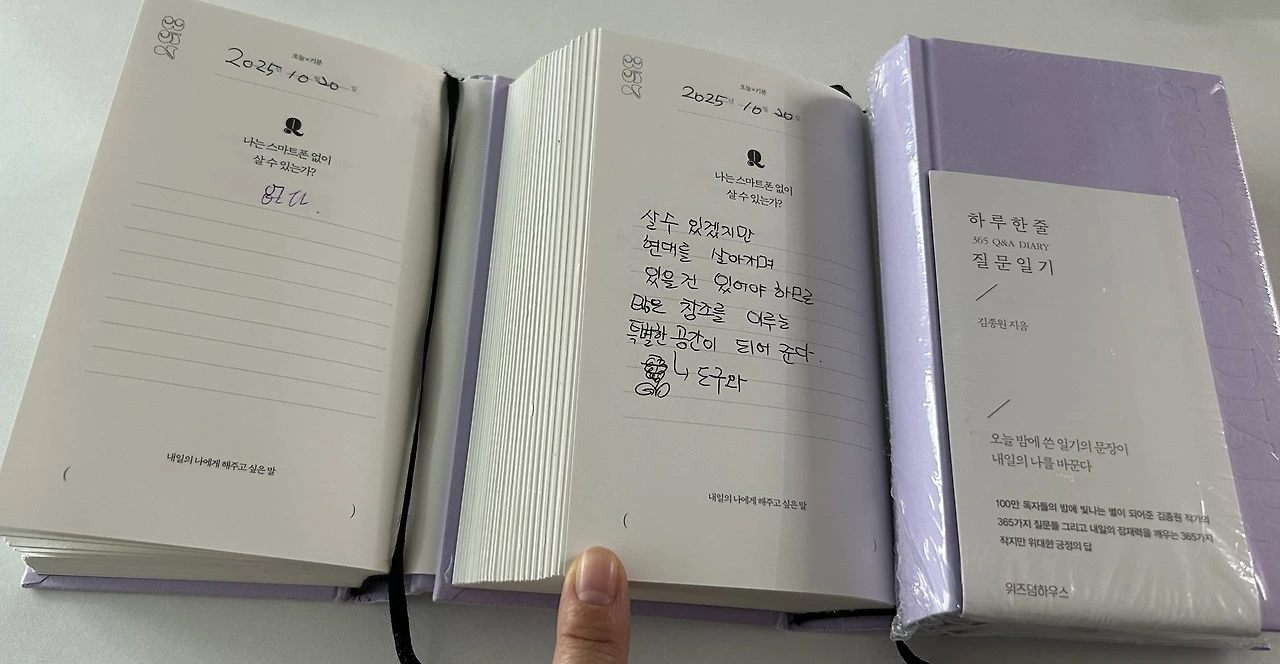 오늘×기분
2025년 10월 20일
나는 스마트폰 없이
살 수 있는가?
없다.
내일의 나에게 해주고 싶은 말
(
)
오늘×기분
2025년 10월 20일
나는 스마트폰 없이
살 수 있는가?
살수 있겠지만
현대를 살아가며
있을건 있어야 하므로
많은 창조를 이루는
특별한 공간이 되어 준다.
↳ 도구와
내일의 나에게 해주고 싶은 말
(
)
하루 한 줄
365 Q&A DIARY
질문 일기
김종원 지음
오늘 밤에 쓴 일기의 문장이
내일의 나를 바꾼다
100만 독자들의 밤에 빛나는 별이 되어준 김종원 작가의
365가지 질문들 그리고 내일의 잠재력을 깨우는 365가지
작지만 위대한 긍정의 답
위즈덤하우스